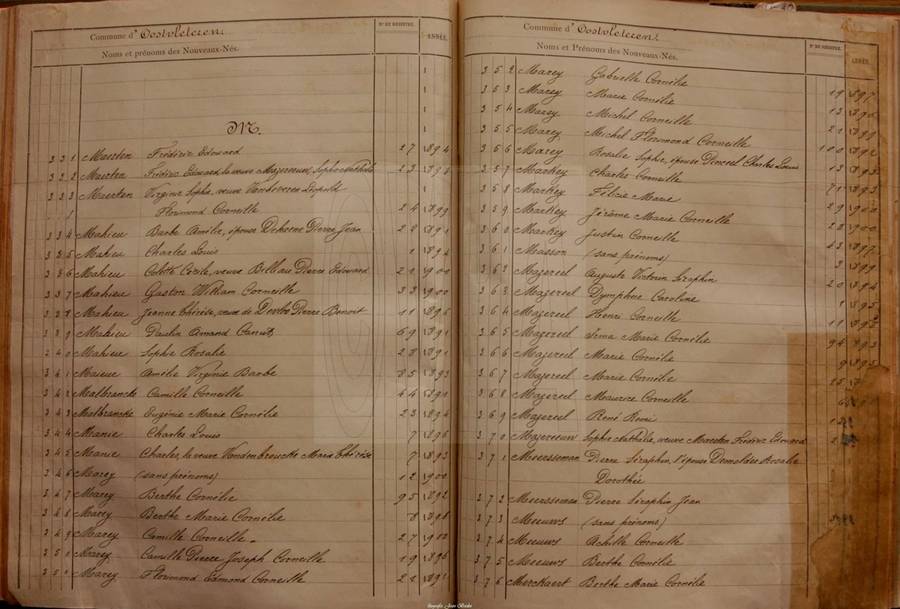 Commune d' Oostvleteren.
Noms et prénoms des Nouveaux-Nés.
N° DE REGISTRE.
ANNÉE.
M.
331 Maerten Frédéric Edouard 27 1894
332 Maerten Frédéric Edouard, le veuve Majereeuw, Sophie Nathalie 23 1893
333 Maerten Virginie Sophie, veuve
Florimond Corneille 24 1899
334 Mahieu Barbe Amélie, épouse Pierre Jean 28 1891
335 Mahieu Charles Louis 1 1894
336 Mahieu Colette Cécile, veuve Billiau Pierre Edouard 21 1900
337 Mahieu Gaston William Corneille 33 1900
338 Mahieu Jeanne Thérèse, veuve de Pierre Benoit 11 1896
339 Mahieu Paulin Amand 69 1891
340 Mahieu Sophie Rosalie 28 1891
341 Maieue Amélie Virginie Barbe 85 1893
342 Malbrancke Camille Corneille 44 1891
343 Malbrancke Eugénie Marie Cornélie 23 1894
344 Manie Charles Louis 7 1896
345 Manie Charles, le veuve Vandenbroucke Marie Thérèse 7 1893
346 Marey (sans prénoms) 12 1900
347 Marey Berthe Cornélie 95 1892
348 Marey Berthe Marie Cornélie 8 1898
349 Marey Camille Corneille 27 1900
350 Marey Camille Pierre Joseph Corneille 19 1896
351 Marey Florimond Edmond Corneille 22 1891
Commune d' Oostvleteren.
Noms et Prénoms des Nouveaux-Nés.
N° DE REGISTRE.
ANNÉE.
352 Marey Gabrielle Cornélie 19 1897
353 Marey Marie Cornélie 13 1890
354 Marey Michel Corneille 21 1899
355 Marey Michel Florimond Corneille 100 1892
356 Marey Rosalie Sophie, épouse Charles Louis 13 1893
357 Markey Charles Corneille 71 1893
358 Markey Félicie Marie 29 1900
359 Markey Jérôme Marie Corneille 28 1900
360 Markey Justin Corneille 23 1897
361 Masson (sans prénoms) 3 1899
362 Mazereel Auguste Victorin Séraphin 20 1894
363 Mazereel Dymphne Caroline 1895
364 Mazereel Henri Corneille 11 1892
365 Mazereel Irma Marie Cornélie 94 1893
366 Mazereel Marie Cornélie 9 1895
367 Mazereel Marie Cornélie
368 Mazereel Maurice Corneille
369 Mazereel René Remi
370 Majereeuw Sophie Nathalie, veuve Maerten Frédéric Edouard
371 Meersseman Pierre Séraphin, l'épouse Rosalie
Dorothée
372 Meersseman Pierre Séraphin Jean
373 Meeuws (sans prénoms)
374 Meeuws Achille Corneille
375 Meeuws Berthe Cornélie
376 Merckaert Berthe Marie Cornélie